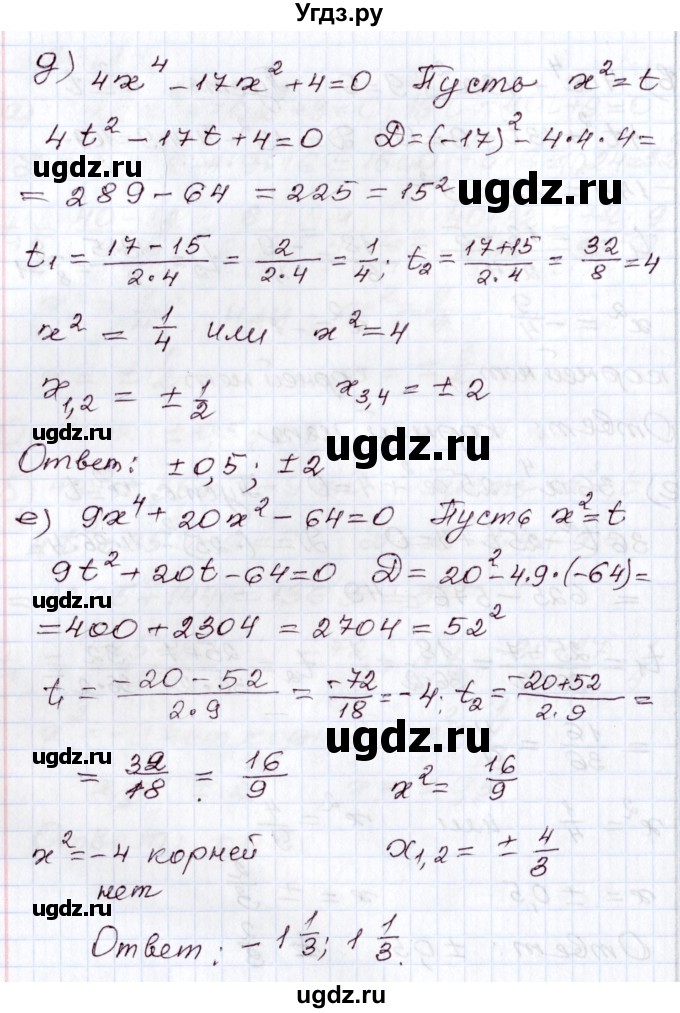 Угдз.ру
д) 4x⁴ − 17x² + 4 = 0 Пусть x² = t
4t² − 17t + 4 = 0 Д = (−17)² − 4·4·4 =
ugdz.ru ugdz.ru
= 289 − 64 = 225 = 15²
t₁ = (17−15)/(2·4) = 2/(2·4) = 1/4; t₂ = (17+15)/(2·4) = 32/8 = 4
ugdz.ru
x² = 1/4 или x² = 4
x₁,₂ = ± 1/2 x₃,₄ = ± 2
ugdz.ru ugdz.ru
Ответ: ±0,5; ±2
е) 9x⁴ + 20x² − 64 = 0 Пусть x² = t
9t² + 20t − 64 = 0 Д = 20² − 4·9·(−64) =
ugdz.ru
= 400 + 2304 = 2704 = 52²
t₁ = (−20−52)/(2·9) = −72/18 = −4; t₂ = (−20+52)/(2·9) =
ugdz.ru ugdz.ru
= 32/18 = 16/9 x² = 16/9
x² = −4 корней x₁,₂ = ± 4/3
нет
ugdz.ru
Ответ: −1 1/3; 1 1/3.
ugdz.ru
ugdz.ru